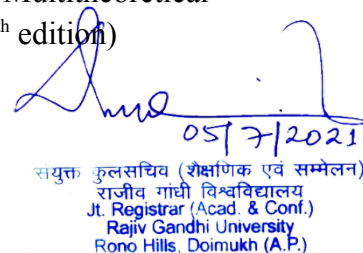 Multitheoretical
h edition)
05/7/2021
सयुक्त कुलसचिव (शैक्षणिक एवं सम्मेलन)
राजीव गांधी विश्वविद्यालय
Jt. Registrar (Acad. & Conf.)
Rajiv Gandhi University
Rono Hills, Doimukh (A.P.)